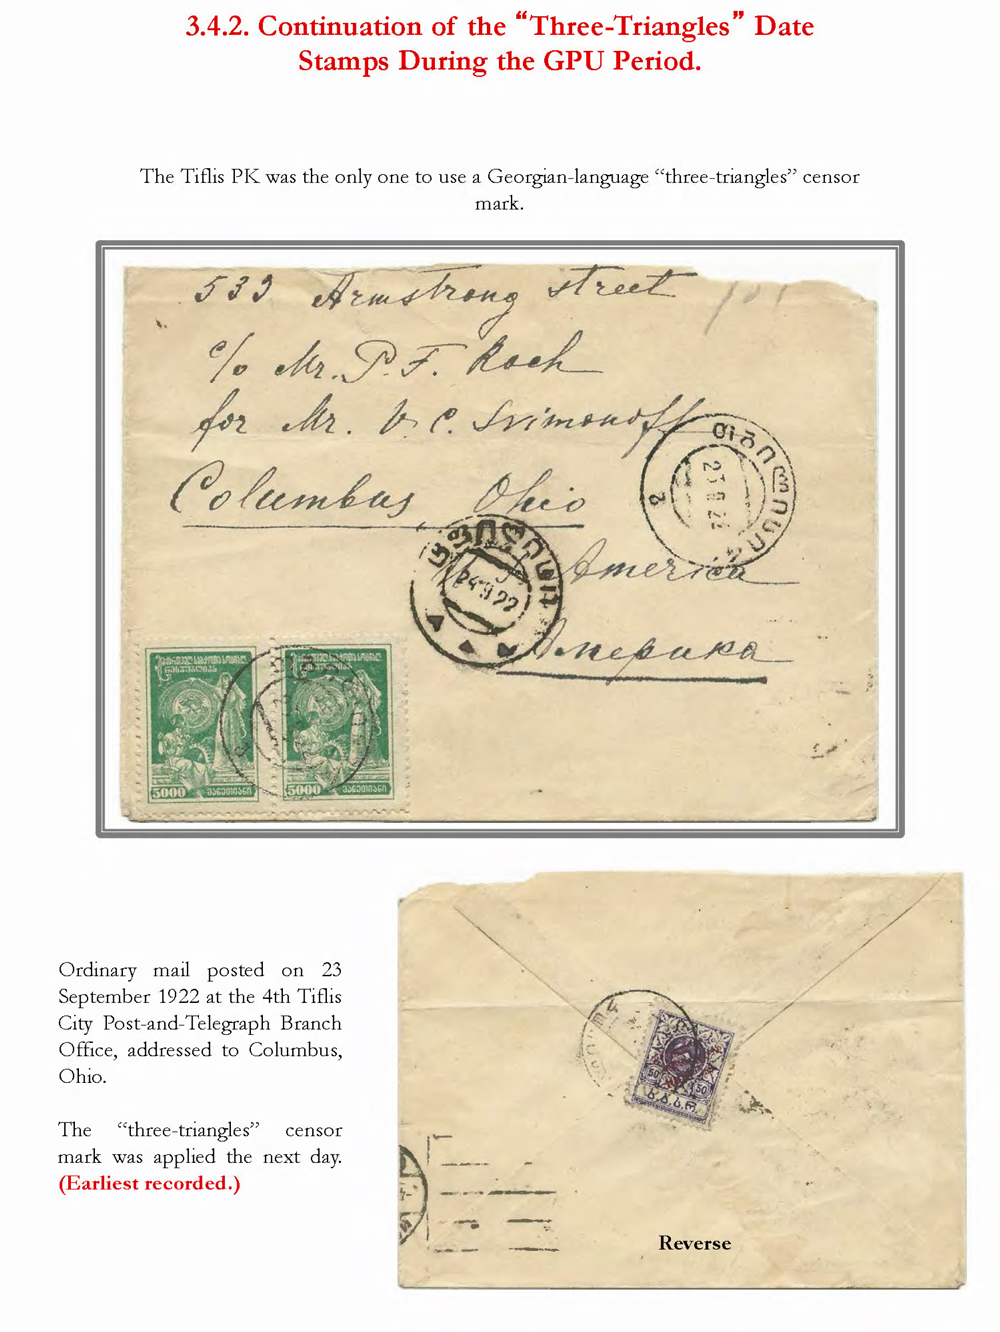 3.4.2. Continuation of the “Three-Triangles” Date
Stamps During the GPU Period.
The Tiflis PK was the only one to use a Georgian-language “three-triangles” censor
mark.
533 Armstrong street
c/o Mr. P. F. Koch
for Mr. V. C. Svimonoff
Columbus, Ohio
America
Америка
თბილისი
23 9 22
ტფილისი
24 9 22
5000 მანეთიანი
5000 მანეთიანი
Ordinary mail posted on 23
September 1922 at the 4th Tiflis
City Post-and-Telegraph Branch
Office, addressed to Columbus,
Ohio.
The “three-triangles” censor
mark was applied the next day.
(Earliest recorded.)
50 50
Reverse